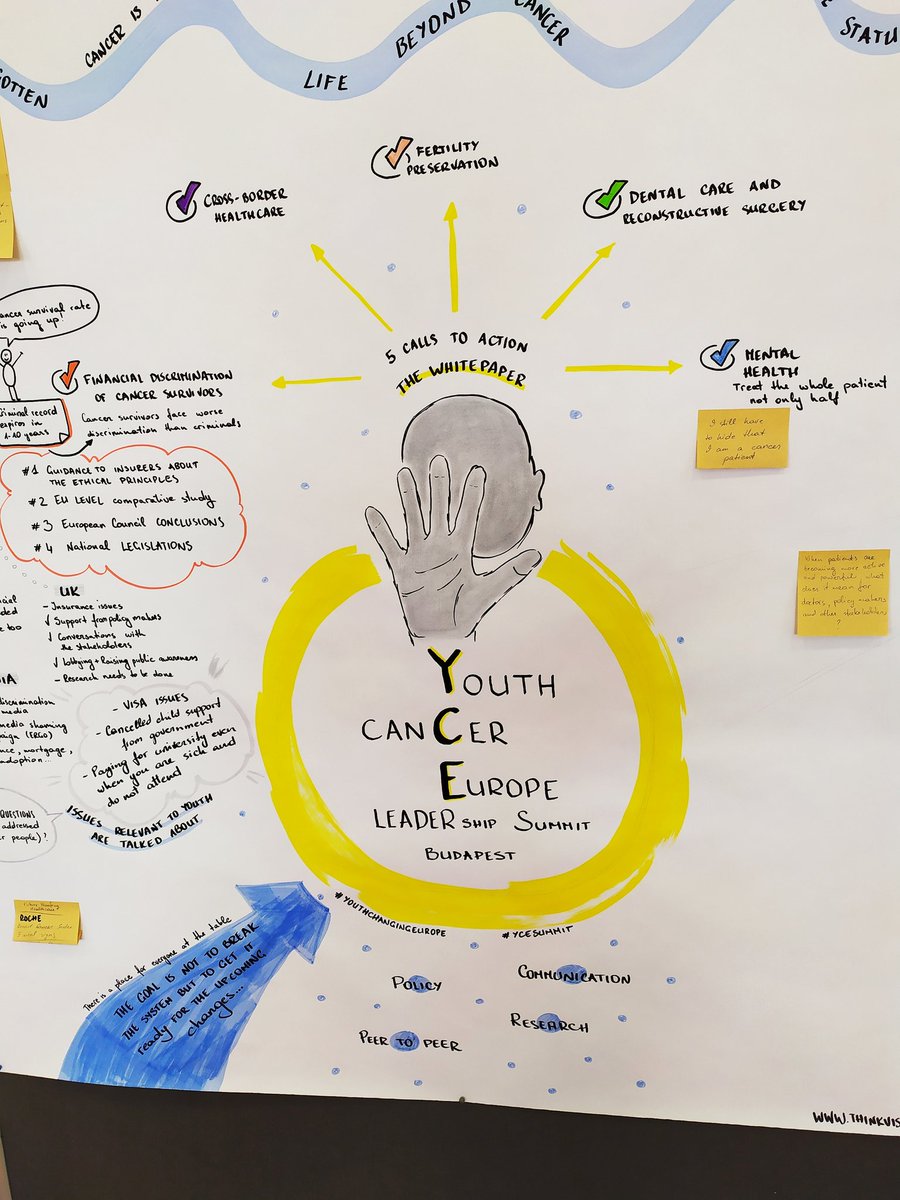 OTTEN
CANCER IS
LIFE
BEYOND
CANCER
STATU
FERTILITY
PRESERVATION
CROSS-BORDER
HEALTHCARE
DENTAL CARE AND
RECONSTRUCTIVE SURGERY
5 CALLS TO ACTION
THE WHITEPAPER
MENTAL
HEALTH
Treat the whole patient
not only half
I still have
to hide that
I am a cancer
patient
ancer survival rate
is going up!
FINANCIAL DISCRIMINATION
OF CANCER SURVIVORS
Cancer survivors face worse
discrimination than criminals
riminal record
expires in
1-10 years
#1 GUIDANCE TO INSURERS ABOUT
THE ETHICAL PRINCIPLES
#2 EU LEVEL comparative study
#3 European Council CONCLUSIONS
#4 National LEGISLATIONS
When patients are
becoming more active
and powerful, what
does it mean for
doctors, policy makers
and other stakeholders
?
cial
ded
e too
UK
- Insurance issues
√ Support from policy makers
√ Conversations with
the stakeholders
√ Lobbying + Raising public awareness
- Research needs to be done
IA
discrimination
media
media shaming
aign (ERGO)
nce, mortgage,
adoption...
- VISA ISSUES
- Cancelled child support
from government
- Paying for university even
when you are sick and
do not attend
QUESTIONS
addressed
r people)?
ISSUES RELEVANT TO YOUTH
ARE TALKED ABOUT
YOUTH
CANCER
EUROPE
LEADERSHIP SUMMIT
BUDAPEST
#YOUTHCHANGINGEUROPE
#YCESUMMIT
ROCHE
There is a place for everyone at the table
THE GOAL IS NOT TO BREAK
THE SYSTEM BUT TO GET IT
ready FOR THE UPCOMING
changes...
POLICY
COMMUNICATION
PEER TO PEER
RESEARCH
WWW.THINKVIS